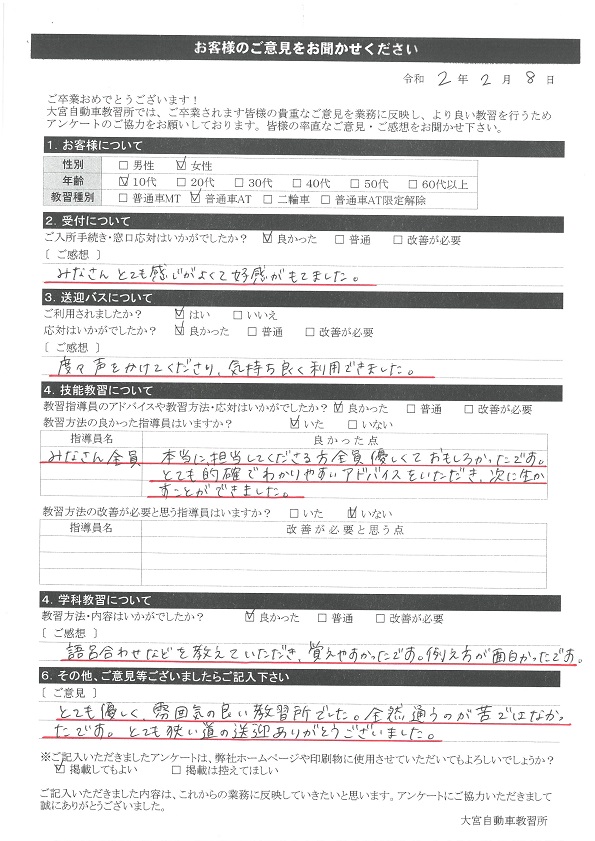 お客様のご意見をお聞かせください
令和 2 年 2 月 8 日
ご卒業おめでとうございます！
大宮自動車教習所では、ご卒業されます皆様の貴重なご意見を業務に反映し、より良い教習を行うため
アンケートのご協力をお願いしております。皆様の率直なご意見・ご感想をお聞かせ下さい。
1. お客様について
性別 □ 男性 ☑ 女性
年齢 ☑ 10代 □ 20代 □ 30代 □ 40代 □ 50代 □ 60代以上
教習種別 □ 普通車MT ☑ 普通車AT □ 二輪車 □ 普通車AT限定解除
2. 受付について
ご入所手続き・窓口応対はいかがでしたか？ ☑ 良かった □ 普通 □ 改善が必要
〔 ご感想 〕
みなさんとても感じがよくて好感がもてました。
3. 送迎バスについて
ご利用されましたか？ ☑ はい □ いいえ
応対はいかがでしたか？ ☑ 良かった □ 普通 □ 改善が必要
〔 ご感想 〕
度々声をかけてくださり、気持ち良く利用できました。
4. 技能教習について
教習指導員のアドバイスや教習方法・応対はいかがでしたか？ ☑ 良かった □ 普通 □ 改善が必要
教習方法の良かった指導員はいますか？ ☑ いた □ いない
指導員名 良かった点
みなさん全員 本当に、担当してくださる方全員優しくておもしろかったです。
とても的確でわかりやすいアドバイスをいただき、次に生か
すことができました。
教習方法の改善が必要と思う指導員はいますか？ □ いた ☑ いない
指導員名 改善が必要と思う点
4. 学科教習について
教習方法・内容はいかがでしたか？ ☑ 良かった □ 普通 □ 改善が必要
〔 ご感想 〕
語呂合わせなどを教えていただき、覚えやすかったです。例え方が面白かったです。
6. その他、ご意見等ございましたらご記入下さい
〔 ご意見 〕
とても優しく、雰囲気の良い教習所でした。全然通うのが苦ではなか
ったです。とても狭い道の送迎ありがとうございました。
※ご記入いただきましたアンケートは、弊社ホームページや印刷物に使用させていただいてもよろしいでしょうか？
☑ 掲載してもよい □ 掲載は控えてほしい
ご記入いただきました内容は、これからの業務に反映していきたいと思います。アンケートにご協力いただきまして
誠にありがとうございました。
大宮自動車教習所